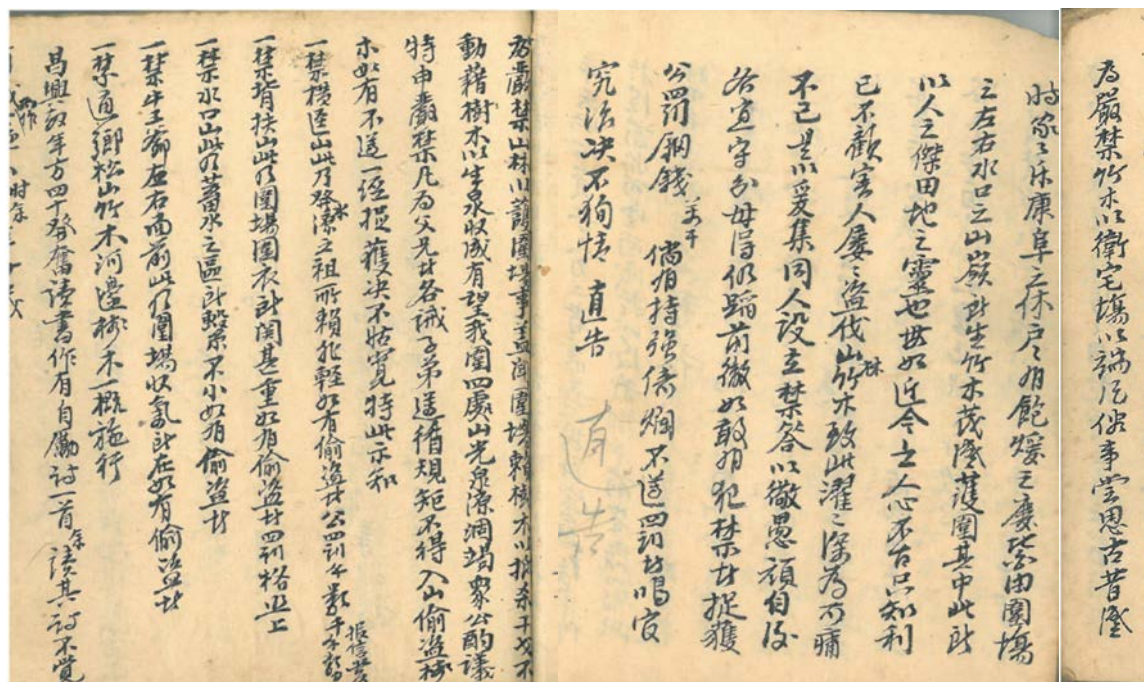 為嚴禁竹木以衛宅塲以端風俗事嘗思古昔盛
時家〻乐康阜之休户〻有飽煖之慶皆由圍塲
之左右水口之山嶺所生竹木茂盛護圍其中此所
以人之傑田地之靈也毋如近今之人心不古只知利
已不顧害人屡〻盗伐山林竹木致此濯〻深為可痛
不已是以爰集同人設立禁畧以儆愚頑自後
各宜字分毋得仍蹈前徹如敢有犯禁者捉獲
公罰銅錢若干 倘有持強倚爛不遵罰者鳴官
究治决不狥情 直告
道 告
為嚴禁山林以護圍塲事盖聞圍塲賴樹木以
動藉樹木以生泉收成有望我圍四處山光泉源涸竭衆公酌議
特申嚴禁凡為父兄者各誡子弟遵循規矩不得入山偷盗樹
木如有不遵一經捉獲决不姑寬特此示知
一禁横逕山此乃發源水之祖所賴非輕如有偷盗者公罰午數千水
一禁背扶山此乃圍塲圍衣所関甚重如有偷盗者四罰格出上
一禁水口山此乃蓄水之區所繫不小如有偷盗者
一禁牛王爺左右面前此乃圍塲收氣所在如有偷盗者
一禁通鄉松山竹木河邊樹木一概施行
昌興 年方四 發奮讀書作有自勵詩一首 讀其詩不覺